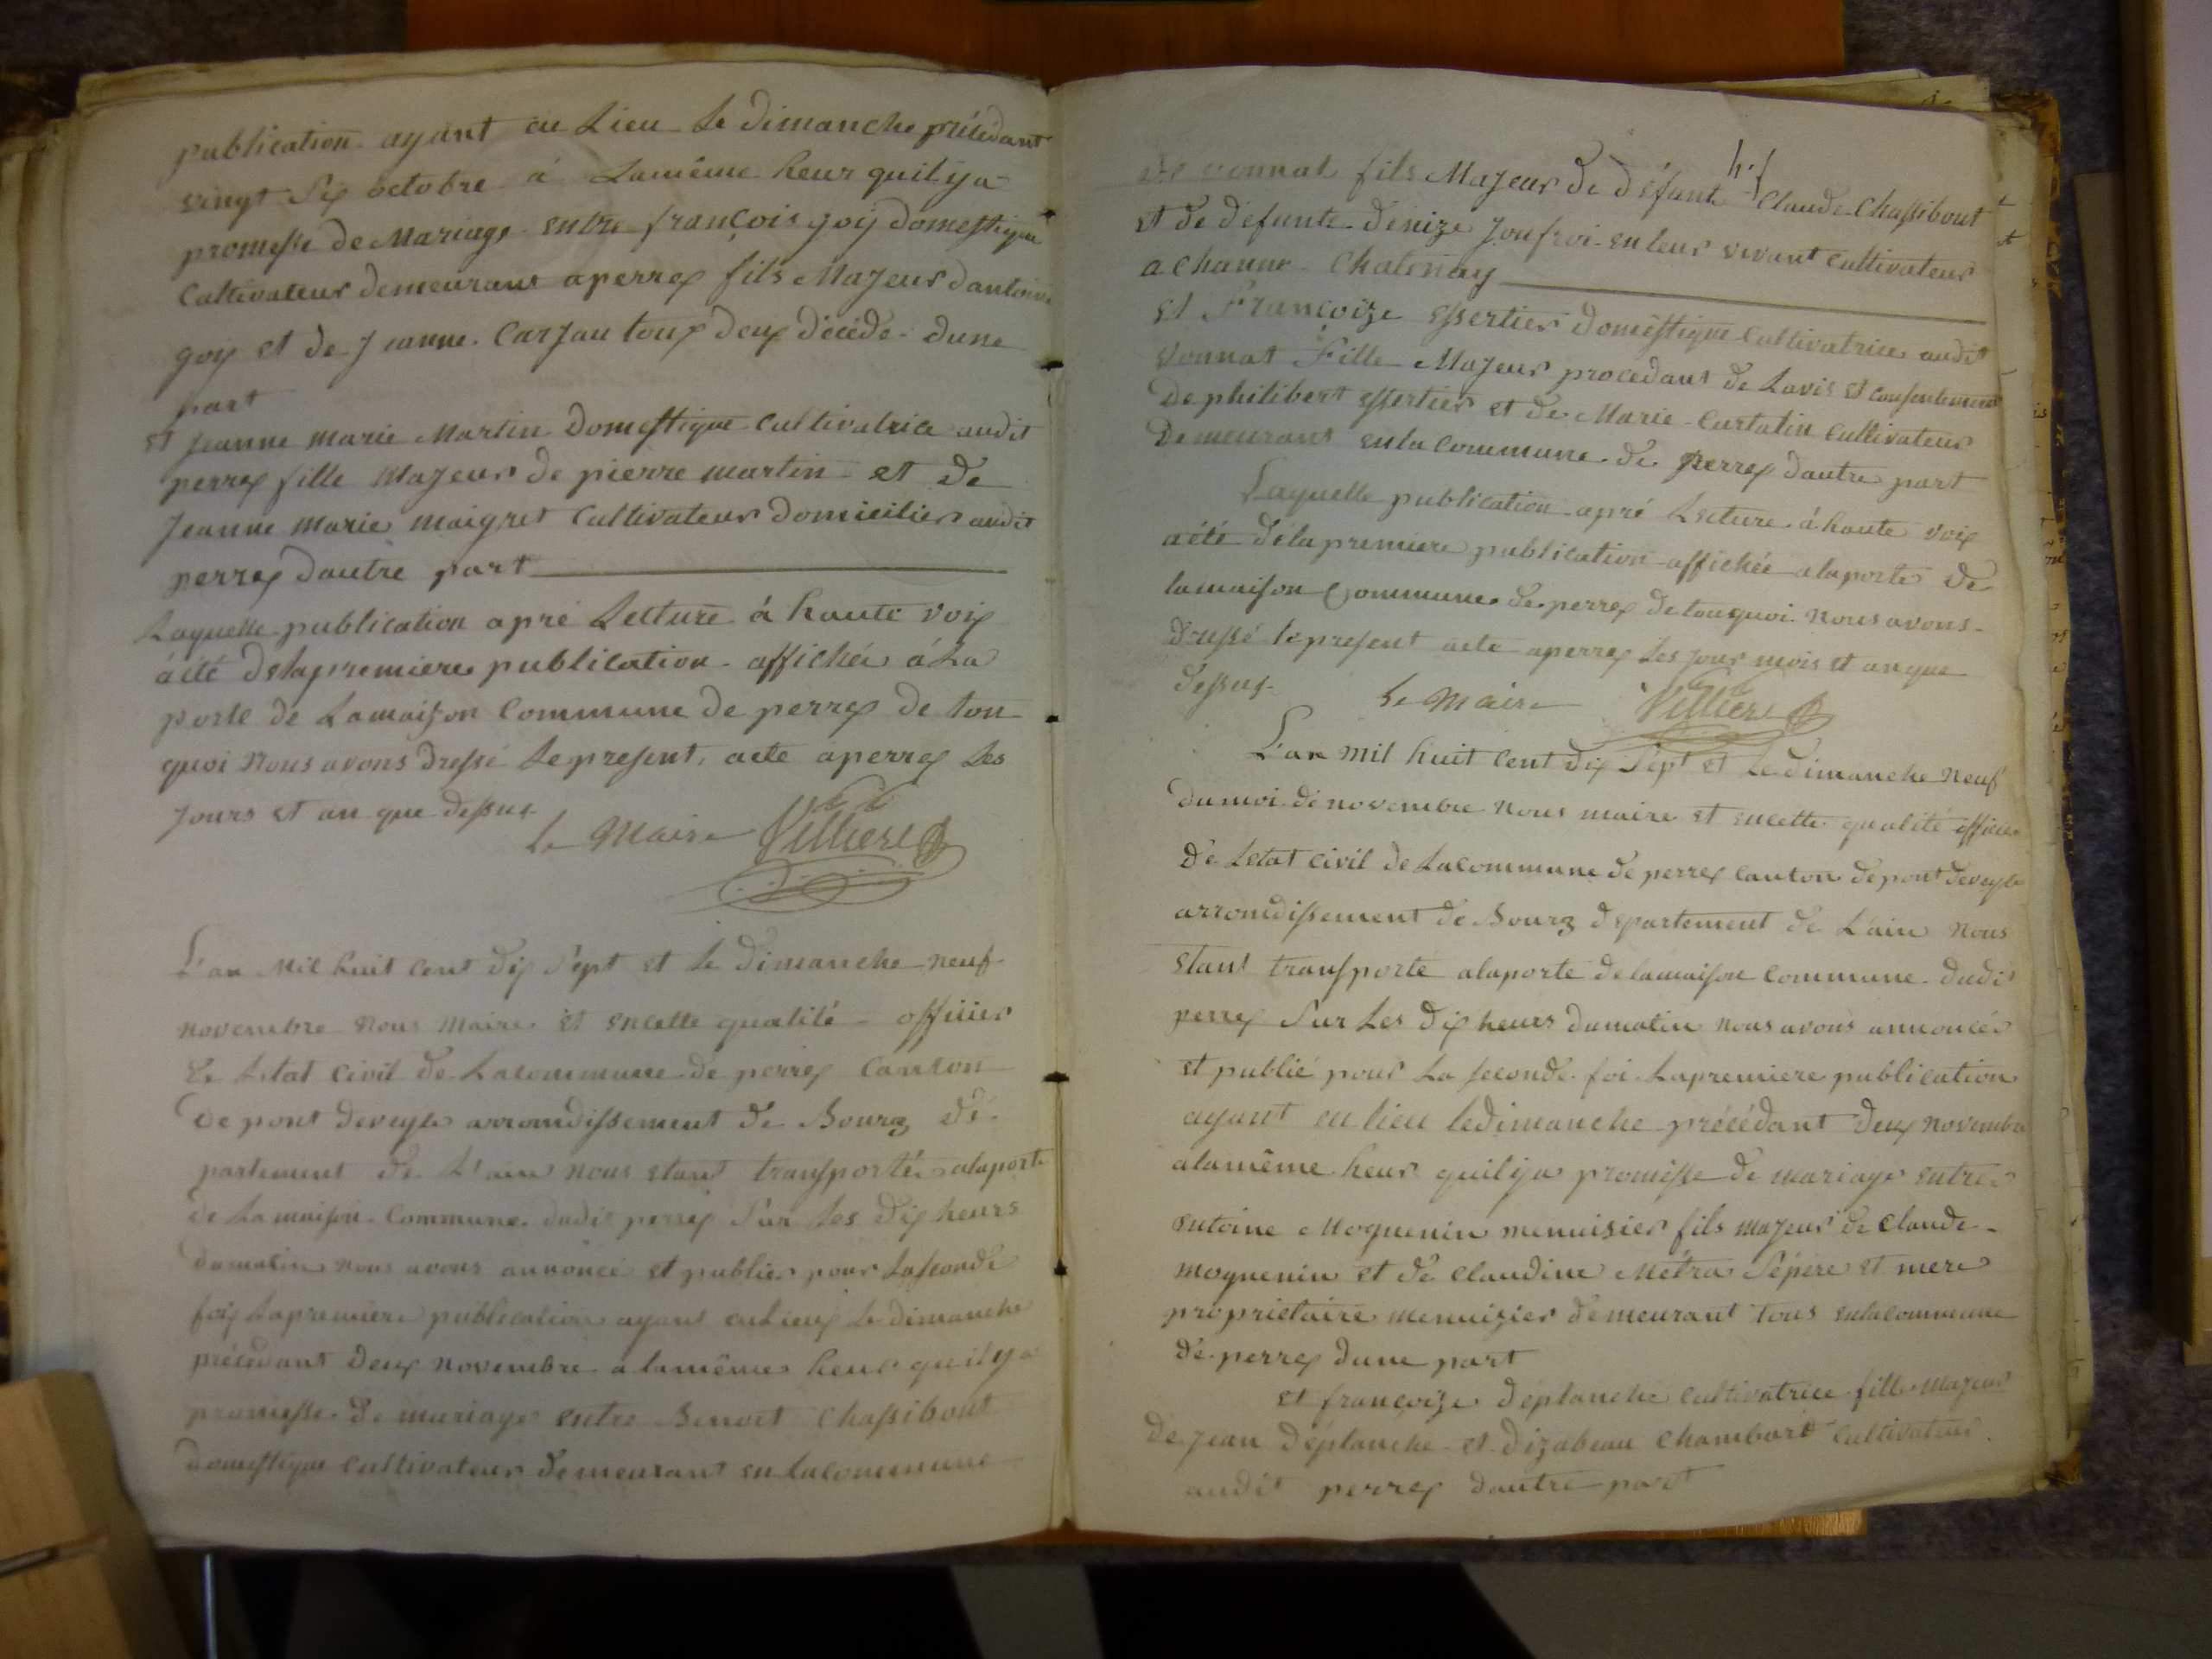 publication ayant eu Lieu Le dimanche précédant
vingt Six octobre à Lamême heur quil y a
promesse de Mariage entre françois goÿ domestique
Cultivateur demeurant a perrex fils Majeur dantoine
goÿ et de Jeanne Carjau tous deux décédé dune
part
et Jeanne marie Martin Domestique Cultivatrice audit
perrex fille Majeur de pierre martin et de
Jeanne marie maigret Cultivateur domicilier audit
perrex dautre part
Laquelle publication apré Lecture à haute voix
à été dèlapremiere publication affichée à La
porte de Lamaison Commune de perrex de tou
quoi Nous avons dressé Lepresent acte aperrex Les
Jours et an que dessus
Le Maire Villiere
L'an Mil huit Cent dix Sept et le dimanche neuf
novembre Nous Maire et encette qualité officier
de Letat Civil de Lacommune de perrex Canton
de pont deveyle arrondissement de Bourg dé
partement de L'ain nous etant transportée alaporte
de La maison Commune dudit perrex Sur Les dix heurs
dumatin nous avons annoncé et publier pour Laseconde
foix Lapremiere publication ayant eu Lieux Le dimanche
précédant deux novembre a lamême heur quil y a
promesse de mariage entre Benoit Chassibout
domestique Cultivateur demeurant en Lacommune
de vonnat fils Majeur de défunt Claude Chassibout
et de defunte denize Joufroi en leur vivant Cultivateur
a Channe Chatenay
et Françoize essertier domestique Cultivatrice audit
vonnat Fille Majeur procedant de Lavis et Consentement
de philibert essertier et de Marie Curtatin Cultivateur
demeurant en la Commune de perrex dautre part
Laquelle publication apré Lecture à haute voix
a été dèla premiere publication affichée a la porte de
la maison Commune de perrex de tou quoi Nous avons
dressé le present acte aperrex Les jour mois et an que
dessus Le Maire Villiere
L'an mil huit Cent dix Sept et Le dimanche Neuf
du moi de novembre Nous maire et encette qualité officier
de Letat Civil de Lacommune de perrex Canton de pont deveyle
arrondissement de Bourg departement de L'ain Nous
etant transporté a la porte de la maison Commune dudit
perrex Sur Les dix heurs dumatin Nous avons annoncér
et publié pour La seconde foi Lapremiere publication
ayant eu lieu le dimanche précédant deux Novembre
alamême heur quil y a promesse de mariage entre
entoine Moguenin menuisier fils majeur de Claude
Moguenin et de Claudine Métra Sépere et mere
proprietaire menuizier demeurant tous en la commune
de perrex dune part
et françoize déplanche Cultivatrice fille Majeur
de jean déplanche et dizabeau Chambart Cultivateur
audit perrex dautre part